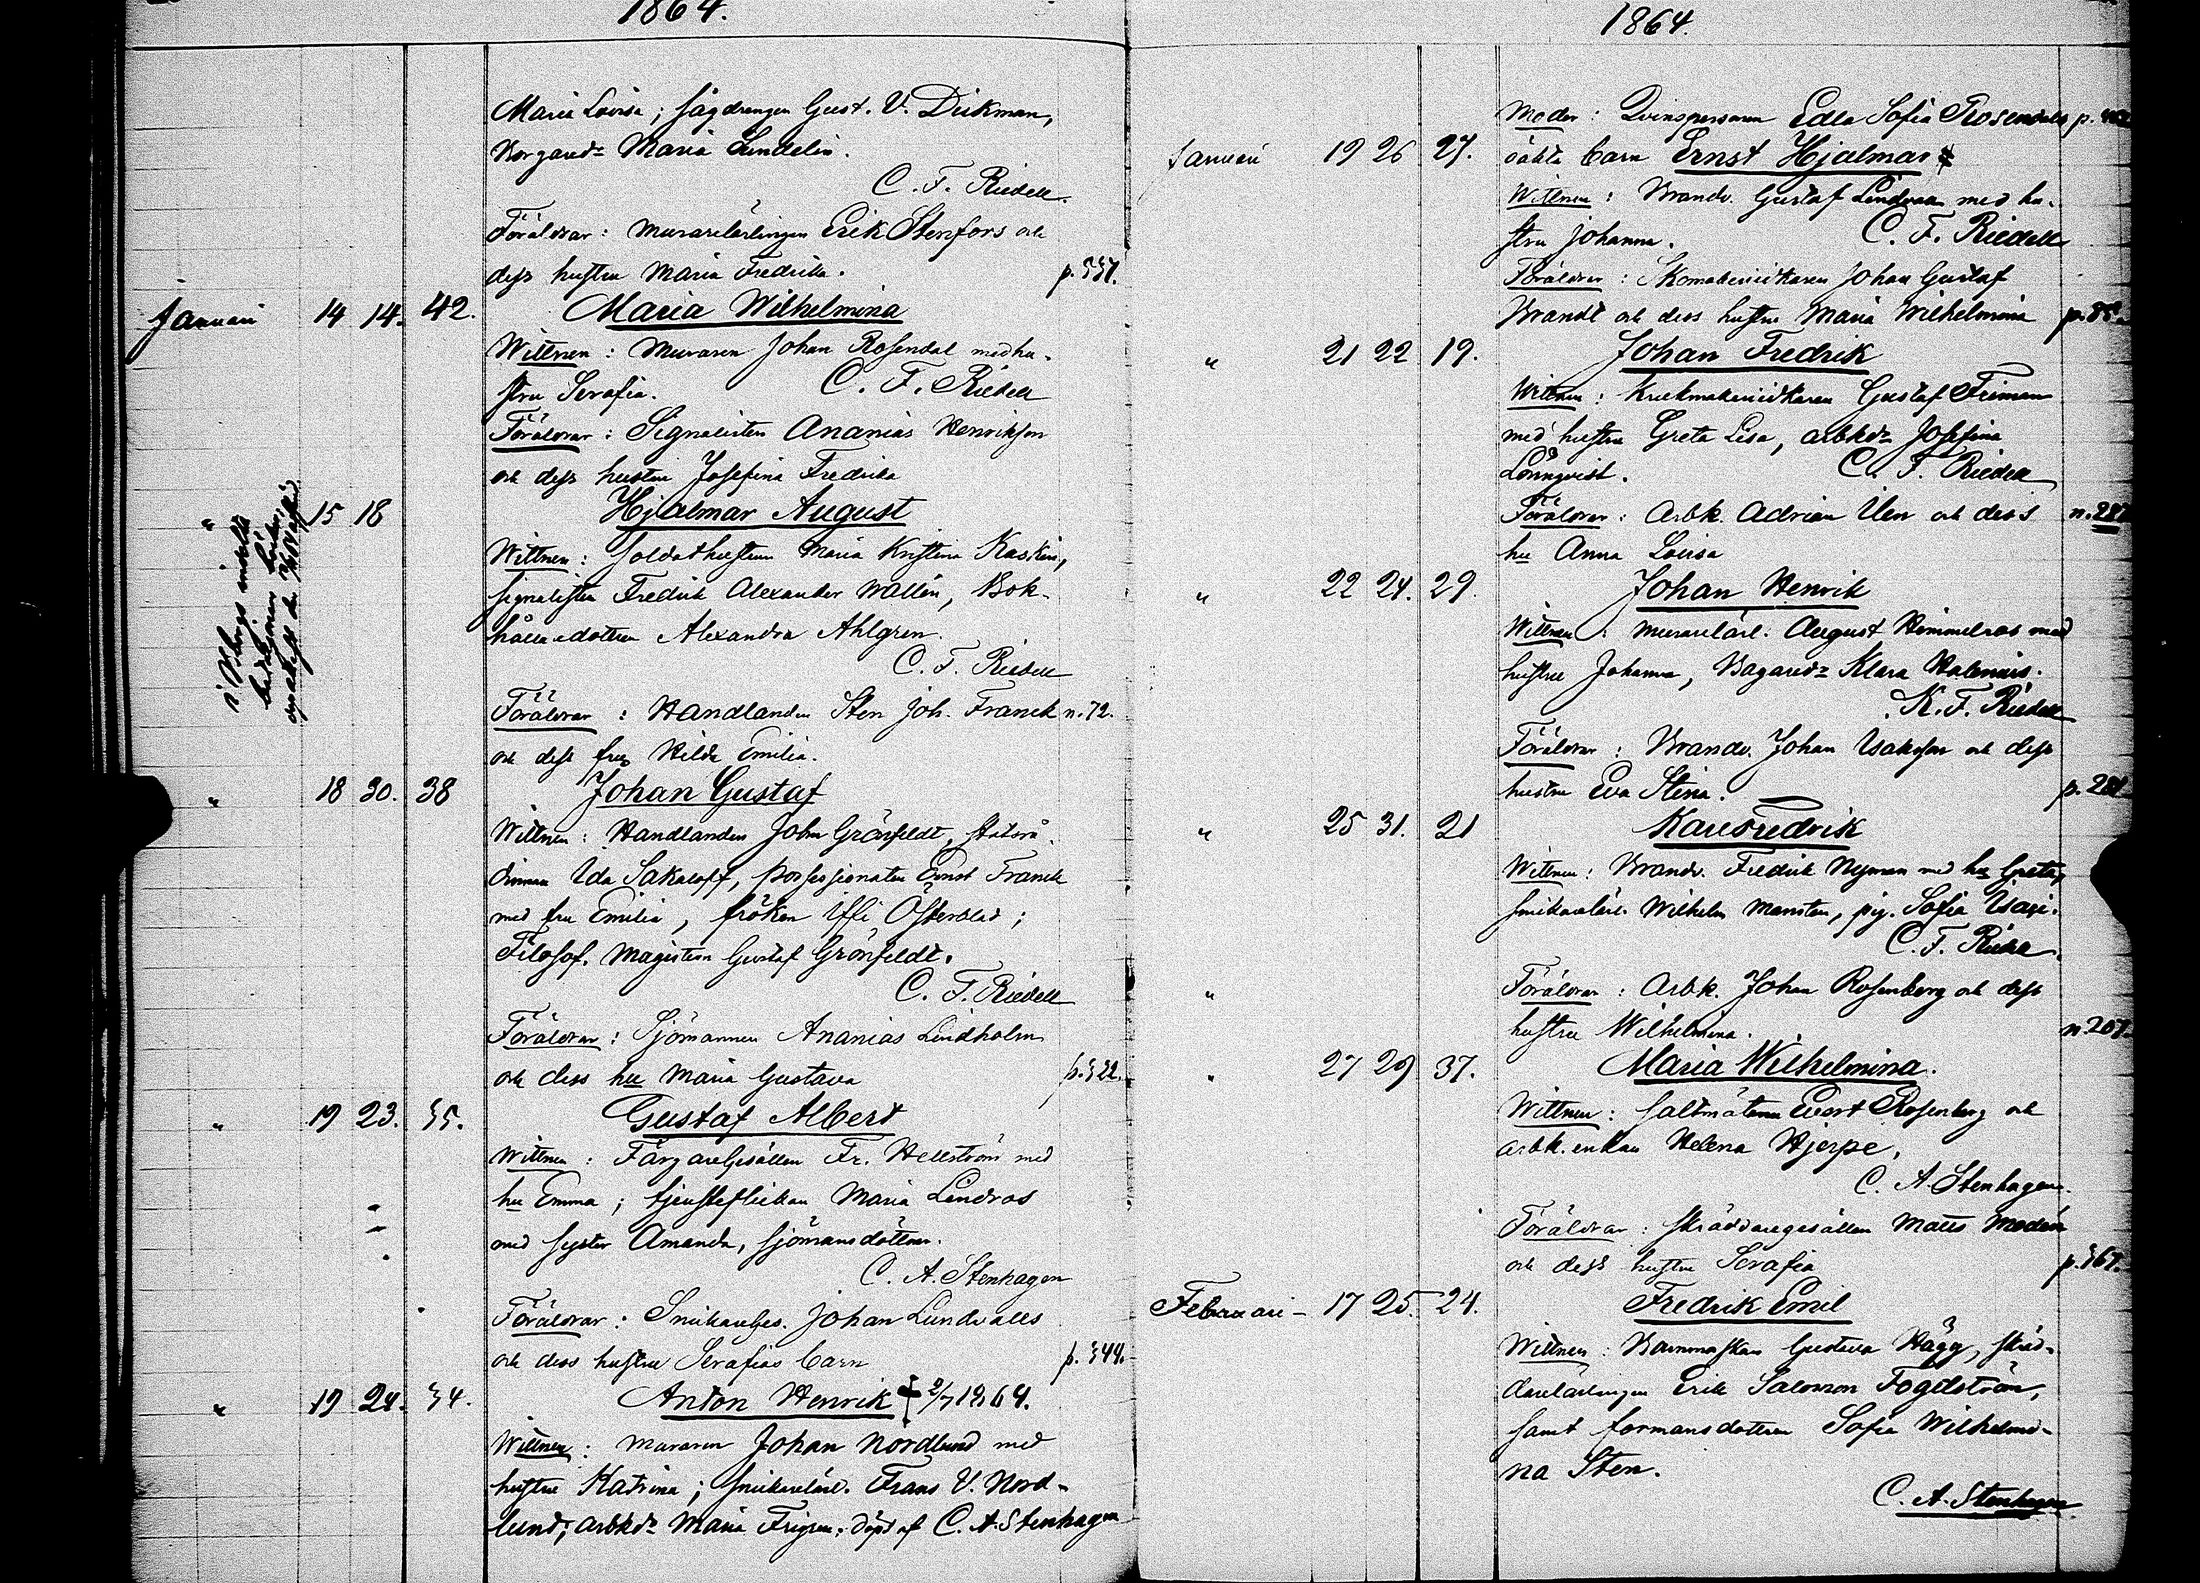 1864.
Maria Lovisa; sågdrengen Gust. V. Dickman,
Borgared:r Maria Lundelin.
C. F. Riedell.
Föräldrar: murarelärlingen Erik Stenfors och
dess hustru Maria Fredrika. p. 537.
Januari 14 14. 42. Maria Wilhelmina
Wittnen: muraren Johan Rosendal med hu-
stru Serafia. C. F. Riedell
Föräldrar: Signalisten Ananias Henrikson
och dess hustru Josefina Fredrika
" 15 18 Hjalmar August
Wittnen: soldathustrun Maria Kristina Kaskin,
signalisten Fredrik Alexander Wallin, Bok-
hållaredottern Alexandra Ahlgren.
C. F. Riedell
Föräldrar: Handlanden Sten Joh. Franck n. 72.
och dess fru Hilda Emilia.
" 18 30. 38 Johan Gustaf
Wittnen: Handlanden John Grönfeldt, statsrå-
dinnan Ida Sakaloff, possessionaten Ernst Franck
med fru Emilia, fröken Iffi Österblad;
Filosof. magistern Gustaf Grönfeldt.
C. F. Riedell
Föräldrar: Sjömannen Ananias Lindholm
och dess hu Maria Gustava p. 322.
" 19 23. 35. Gustaf Albert
Wittnen: Färgaregesällen Fr. Hellström med
hu Emma; tjensteflickan Maria Lindros
med syster Amanda, sjömansdöttrar.
C. A. Stenhagen
Föräldrar: Snickareges. Johan Lundvalls
och dess hustru Serafias barn p. 344.
" 19 24. 34. Anton Henrik † 2/7 1864.
Wittnen: muraren Johan Nordlund med
hustru Katrina; snickarelärl. Frans V. Nord-
lund; arbkd:r Maria Frigren. döpt af C. A. Stenhagen
1864.
Moder: Qvinspersonen Edla Sofia Rosendals p.
Januari 19 26 27. oäkta barn Ernst Hjalmar
Wittnen: Brandv. Gustaf Lindroos med hu-
stru Johanna. C. F. Riedell
Föräldrar: Skomakeriidkaren Johan Gustaf
Brandt och dess hustru Maria Wilhelmina p. 85.
" 21 22 19. Johan Fredrik
Wittnen: Krukmakeriidkaren Gustaf Friman
med hustru Greta Lisa, arbkd:r Josefina
Lönnqvist. C. F. Riedell
Föräldrar: Arbk. Adrian Ulen och dess n. 287
hu Anna Lovisa
" 22 24. 29. Johan Henrik
Wittnen: murarelärl. August Himmelroos med
hustru Johanna, Bagared:r Klara Halenius.
K. F. Riedell
Föräldrar: Brandv. Johan Isakson och dess
hustru Eva Stina. p. 281
" 25 31. 21 Karl Fredrik
Wittnen: Brandv. Fredrik Nyman med hu Greta,
snickarelärl. Wilhelm Mansten, pig. Sofia
C. F. Riedell.
" Föräldrar: Arbk. Johan Rosenberg och dess
hustru Wilhelmina. n. 207.
" 27 29 37. Maria Wilhelmina.
Wittnen: saltmätaren Evert Rosenberg och
arbk. enkan Helena Hjerpe.
C. A. Stenhagen.
Föräldrar: skräddaregesällen Matts Modén
och dess hustru Serafia p. 367.
Februari – 17 25. 24. Fredrik Emil
Wittnen: Barnmorskan Gustava Hägg, skräd-
darelärlingen Erik Salomon Fogelström,
samt formansdottern Sofia Wilhelmi-
na Sten.
C. A. Stenhagen